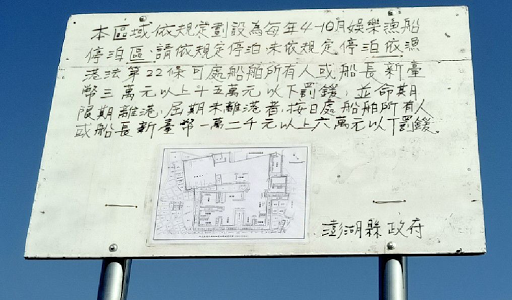 本區域依規定劃設為每年4-10月娛樂漁船
停泊區，請依規定停泊未依規定停泊依漁
港法第22條可處船舶所有人或船長新臺
幣三萬元以上十五萬元以下罰鍰，並命期
限期離港，屆期未離港者，按日處船舶所有人
或船長新臺幣一萬二千元以上六萬元以下罰鍰。
澎湖縣政府